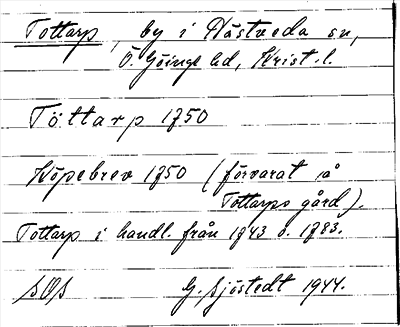 Tottarp, by i Hästveda sn,
Ö. Göinge hd, Krist. l.
Töttarp 1750
Köpebrev 1750 (förvarat å
Tottarps gård).
Tottarp i handl. från 1743 o. 1783.
G. Sjöstedt 1944.